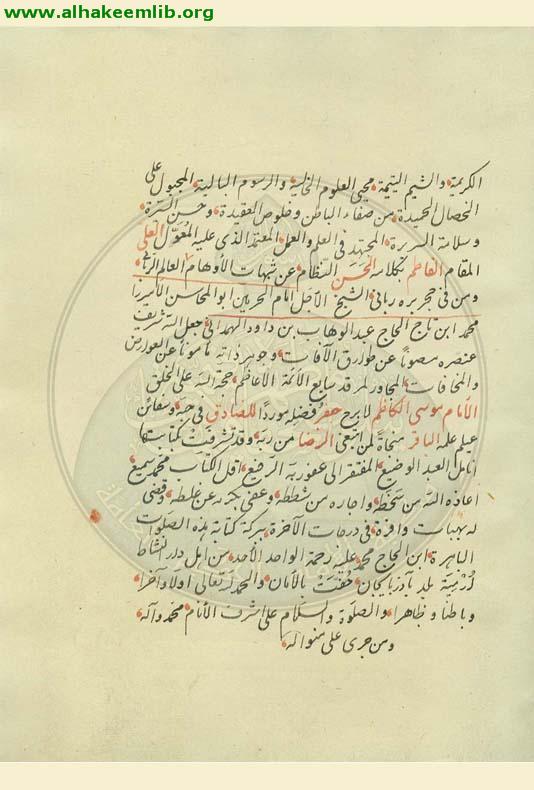 www.alhakeemlib.org
الكريمة والشيم اليتيمة محيى العلوم الخالية والرسوم البالية المجبول على
الخصال الحميدة من صفاء الباطن وخلوص العقيدة وحسن السيرة
وسلامة السريرة المجتهد فى العلم والعمل المعتمد الذى عليه المعول العلى
المقام الفاطم بكلامه الحسن النظام عن شبهات الأوهام العالم الربانى
ومن فى حجر بره ربانى الشيخ الأجل امام الحرمين ابو المحاسن الأميرزا
محمد ابن تاج الحاج عبد الوهاب بن داود الهمدانى جعل الله شريف
عنصره مصونا عن طوارق الآفات وجوهر ذاته مأمونا عن العوارض
والمخافات المجاور لمرقد سابع الأئمة الأعاظم حجة الله على الخلق
الأمام موسى الكاظم لا برح جعفر فضله موردا للصادق فى حبه وسفائن
عيلم علمه الباقر منجاة لمن ابتغى الرضا من ربه وقد تشرفت بكتابتها
انامل العبد الوضيع المفتقر الى عفو ربه الرفيع اقل الكتاب محمد سميع
اعاذه الله من سخطه واجاره من شططه وعفى بكرمه عن غلطه وقضى
له بهبات وافرة فى درجات الآخرة ببركة كتابة هذه الصلوات
الباهرة ابن الحاج محمد عليه رحمة الواحد الأحد من اهل دار النشاط
أرمية بلد بآذربايجان حفت بالأمان والحمد لله تعالى اولا وآخرا
وباطنا وظاهرا والصلوة والسلام على اشرف الأنام محمد وآله
ومن جرى على منواله